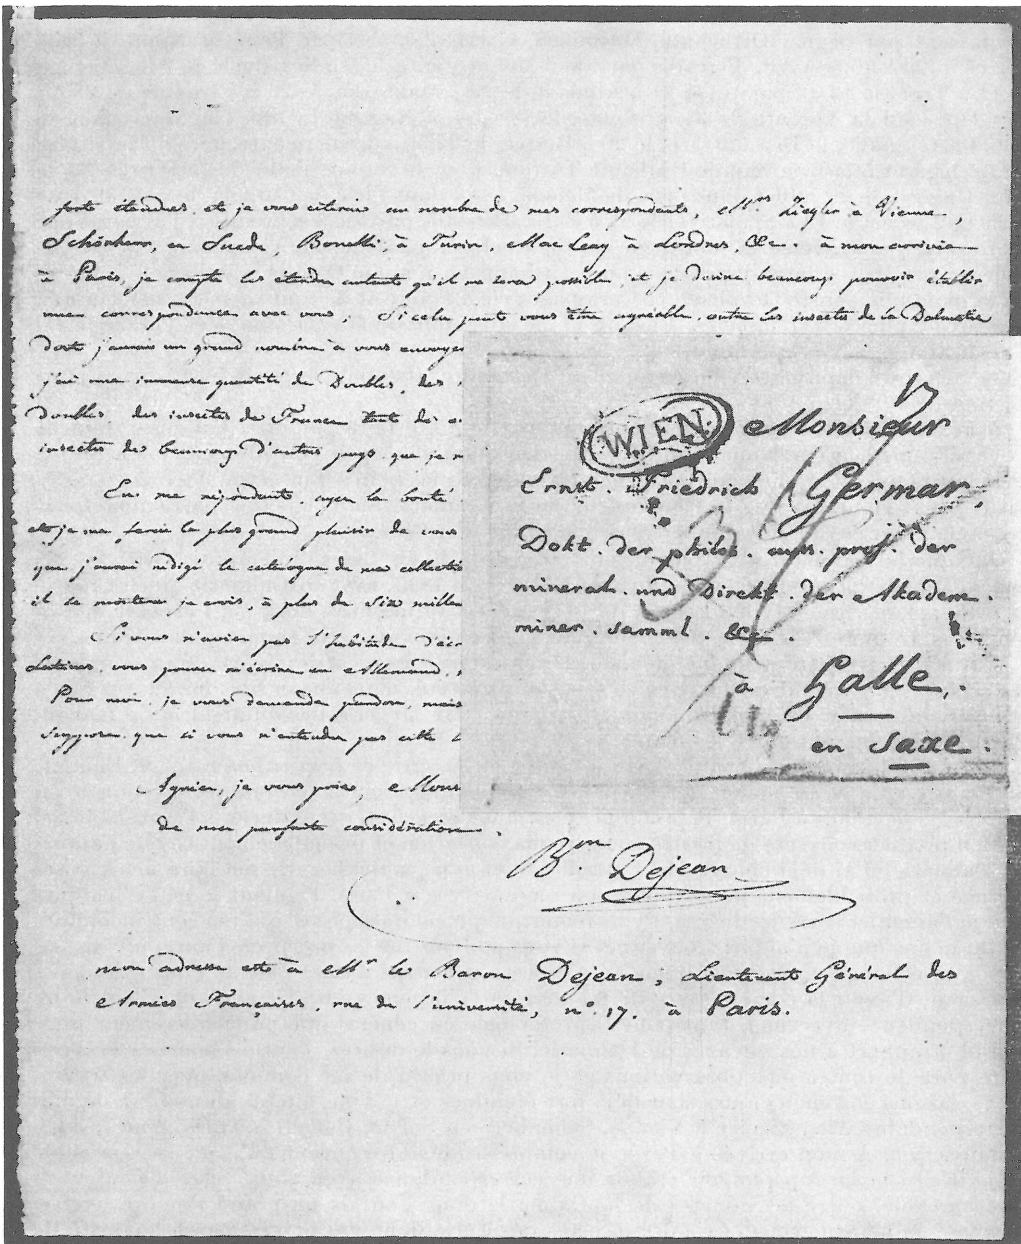 forte étendues, et je vous citerais au nombre de mes correspondants, MMrs Ziegler à Vienne,
Schönherr, en Suede, Bonelli, à Turin, Mac Leay à Londres, &c. à mon arrivée
à Paris, je compte les étendre autant qu'il me sera possible, et je désire beaucoup pouvoir établir
une correspondance avec vous. Si cela peut vous être agréable, outre les insectes de la Dalmatie
dont j'aurais un grand nombre à vous envoyer
j'ai une immense quantité de Doubles, des
doubles des insectes de France tant des
insectes de beaucoup d'autres pays que je
En me répondant, ayez la bonté
et je me ferai le plus grand plaisir de vous
que j'aurai rédigé le catalogue de ma collection
il se montera je crois, à plus de six mille
Si vous n'aviez pas l'habitude d'écr
Latines vous pouvez m'écrire en Allemand,
Pour moi, je vous demande pardon, mais
suppose que si vous n'entendez pas cette
Agréez, je vous prie, Mons
de ma parfaite considération.
Bon Dejean
mon adresse est à Mr le Baron Dejean, Lieutenant Général des
Armées Françaises, rue de l'université, n°. 17. à Paris.
17
WIEN
Monsieur
Ernst Friedrich Germar
Dokt. der philos. auss. prof. der
mineral. und Direkt. der Akadem.
miner. samml. &c
à Halle.
en Saxe.